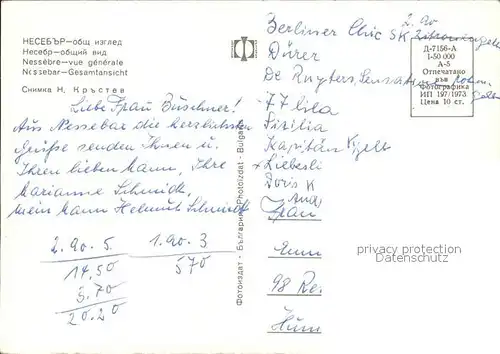 НЕСЕБЪР—общ изглед
Несебр—общий вид
Nessèbre—vue générale
Nessebar—Gesamtansicht
Снимка Н. Кръстев
Liebe Frau Büschner!
Aus Nessebar die herzlichsten
Grüße senden Ihnen u.
Ihren lieben Mann, Ihre
Marianne Schmidt,
mein Mann Helmut Schmidt
2.90.5
14,50
5.70
20.20
1.90.3
570
Фотоиздат - България Photoizdat - Bulgaria
2.90
Berliner Chic SK
Dürer
De Ruyters
77 lila
Sizilia
Kapitän
Liebesli
Doris K
Frau
98 Re
Д-7156-А
I-50 000
А-5
Отпечатано
във
Фотографика
ИП 197/1973
Цена 10 ст.
privacy protection
Datenschutz